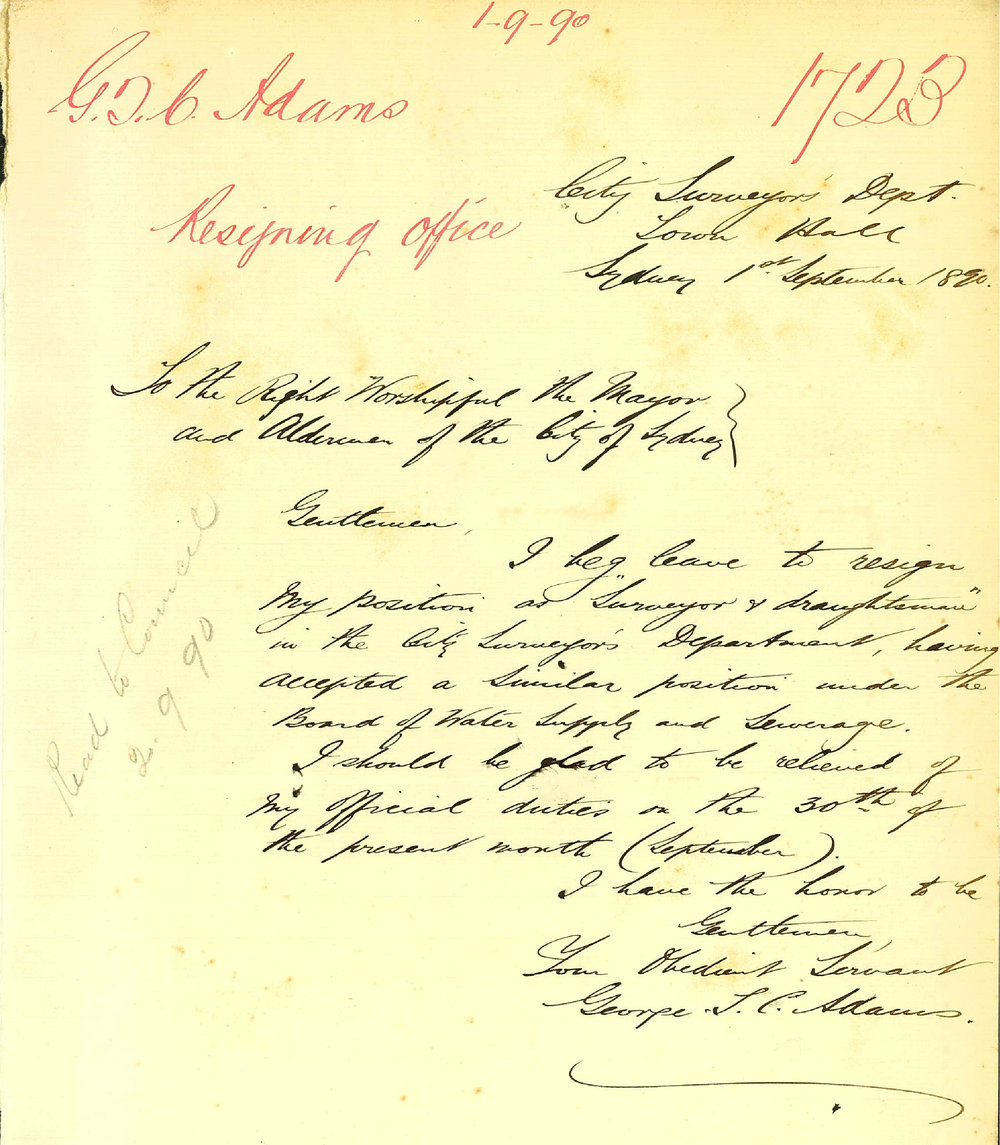 1-9-90
G.T.C. Adams
1723
Resigning office
City Surveyor's Dept.
Town Hall
Sydney 1st September 1890.
To the Right Worshipful the Mayor
and Aldermen of the City of Sydney
Gentlemen,
I beg leave to resign
my position as "Surveyor & draughtsman"
in the City Surveyor's Department, having
accepted a similar position under the
Board of Water Supply and Sewerage.
I should be glad to be relieved of
my official duties on the 30th of
the present month (September).
I have the honor to be
Gentlemen,
Your Obedient Servant
George T. C. Adams.
Read to Council
2. 9 90